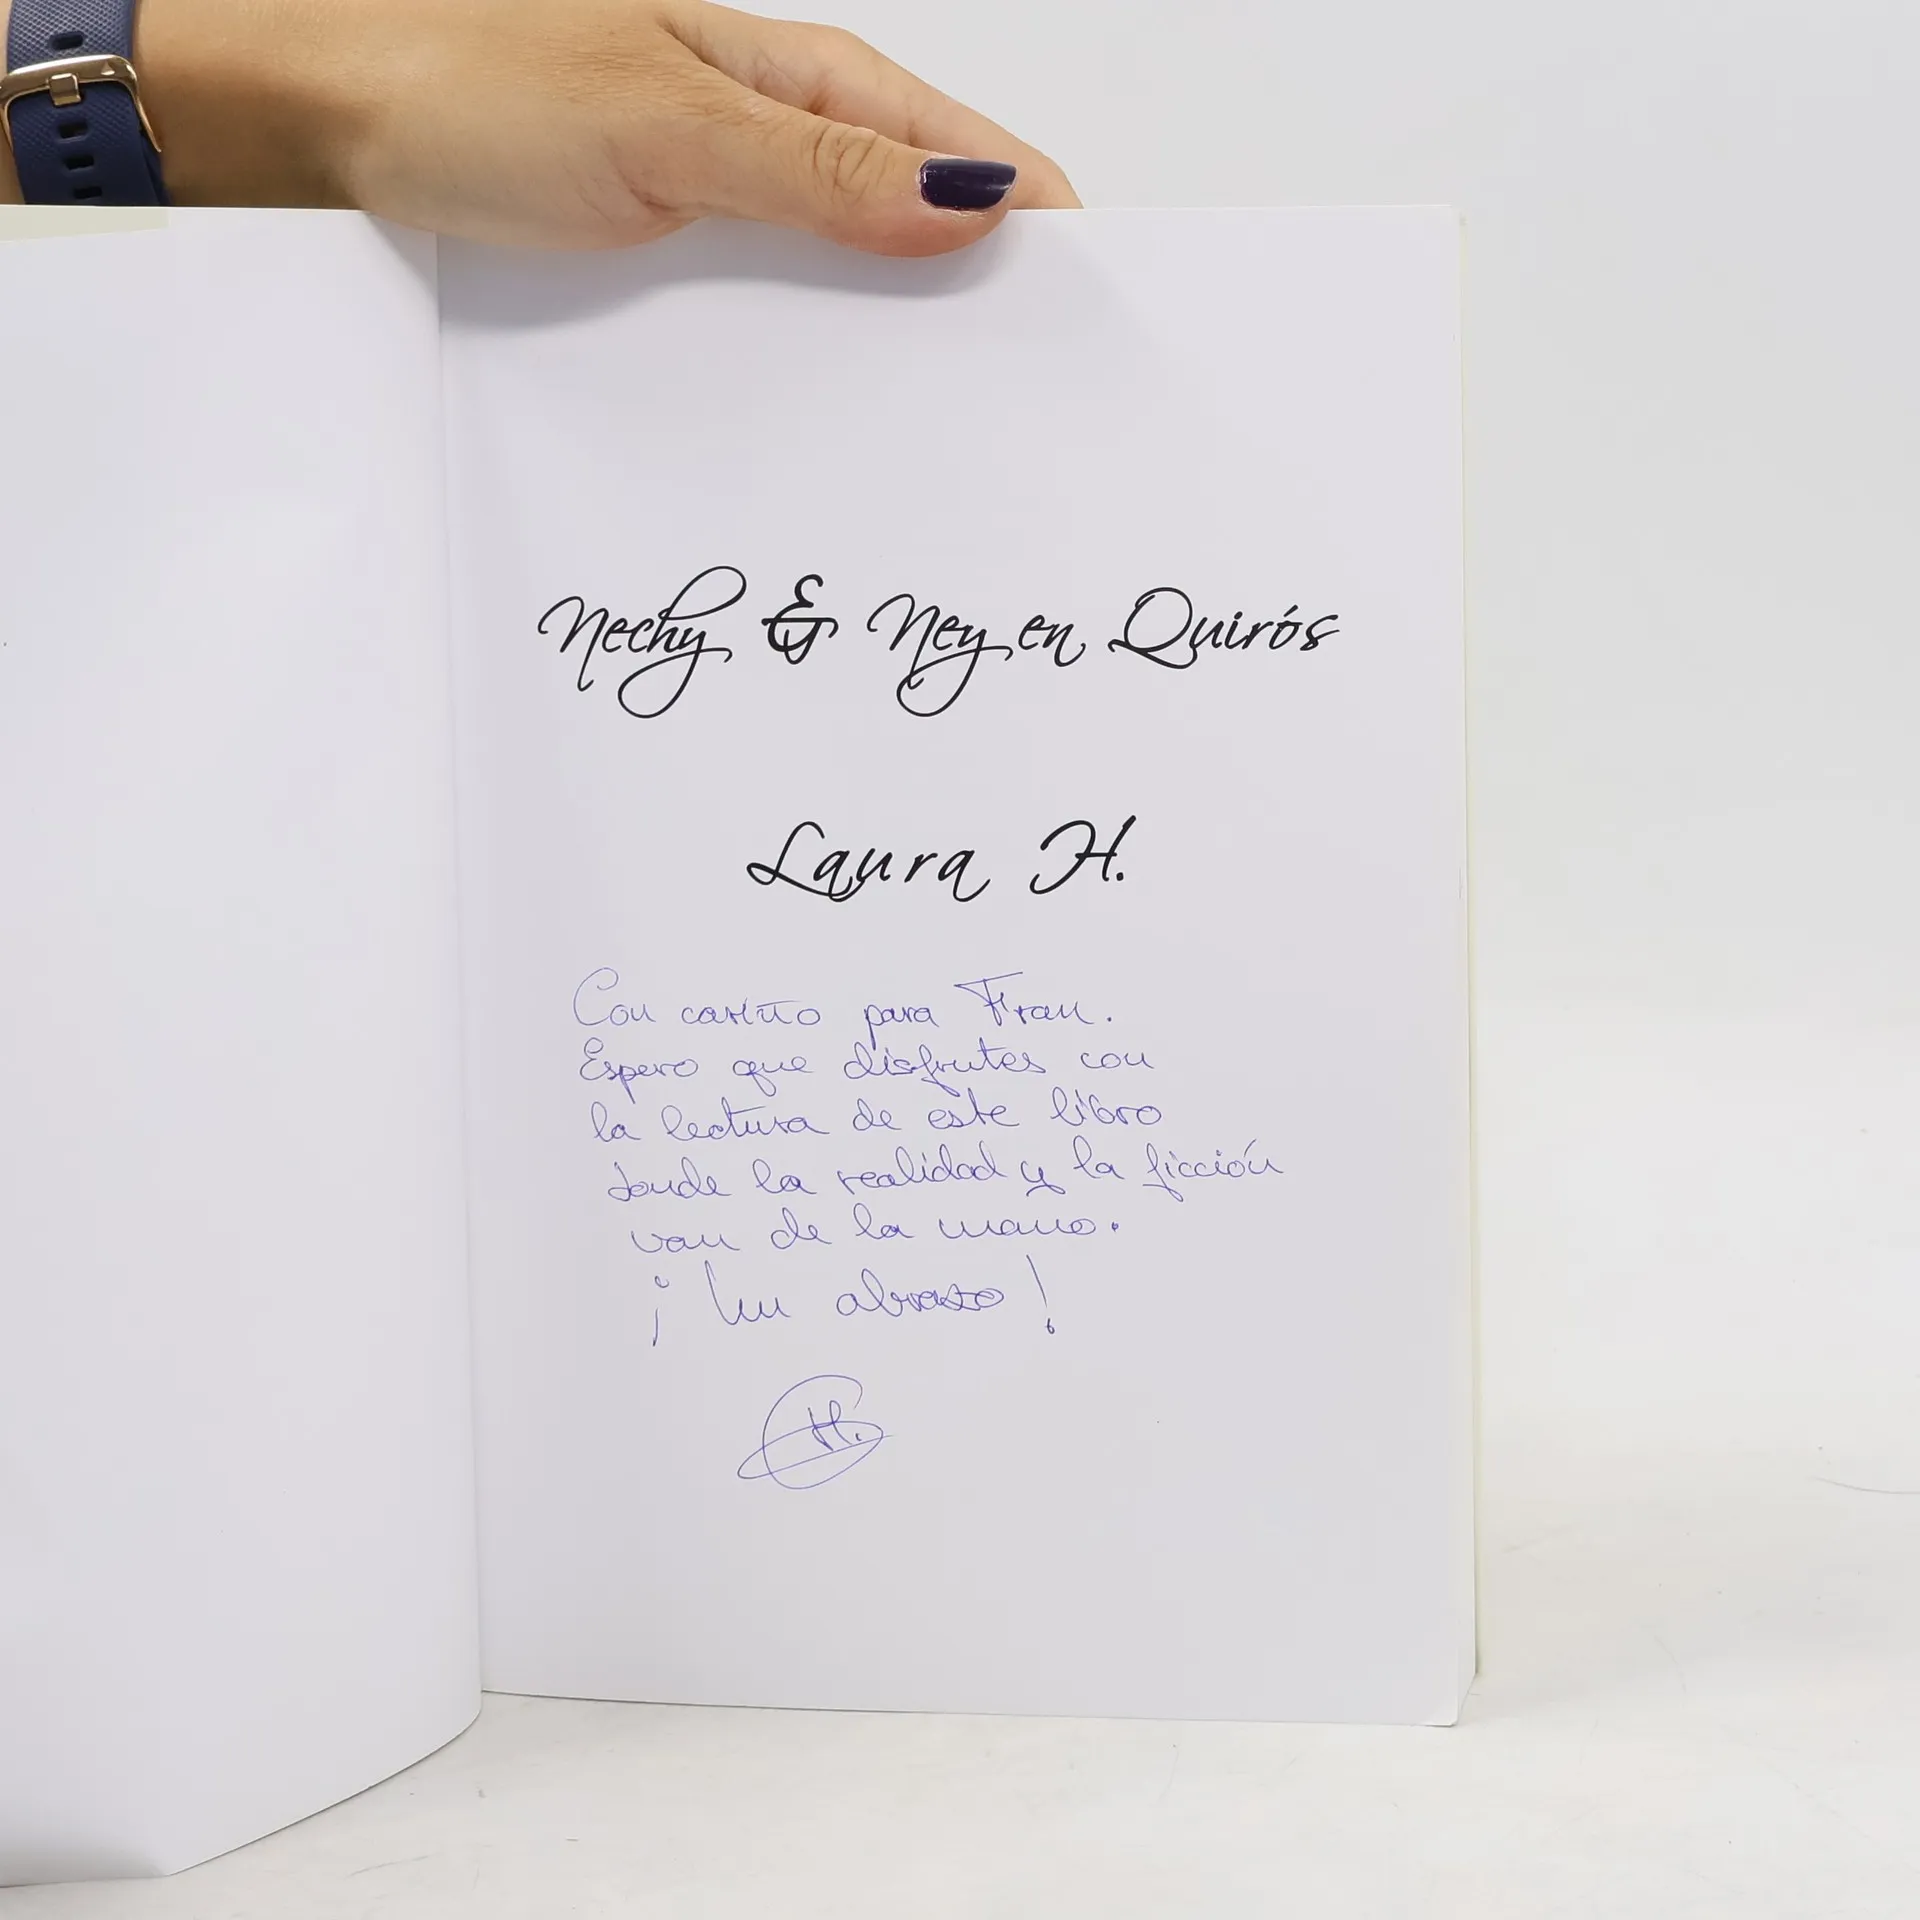 Nechy & Ney en Quirós
Laura H.
Con cariño para Fran.
Espero que disfrutes con
la lectura de este libro
donde la realidad y la ficción
van de la mano.
¡Un abrazo!
H.